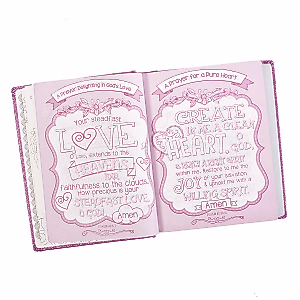 A Prayer Delighting in God's Love
Your steadfast
LOVE
O LORD, extends to the
HEAVENS
YOUR
faithfulness to the clouds.
How precious is your
STEADFAST LOVE
O GOD!
Amen
A Prayer for a Pure Heart
CREATE
IN ME A CLEAN
HEART,
O GOD,
& RENEW A RIGHT SPIRIT
within me. Restore to me the
JOY of your salvation
& uphold me with a
WILLING SPIRIT.
Amen